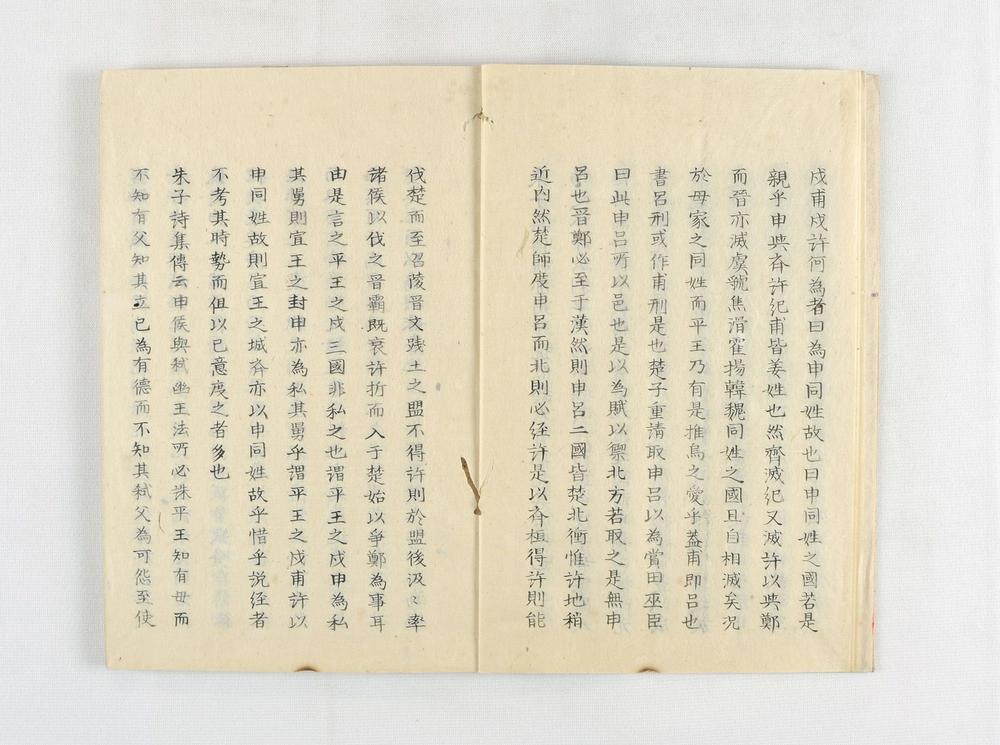 戍甫戍許何為者曰為申同姓故也曰申同姓之國若是
親乎申與齐許紀甫皆姜姓也然齊滅紀又滅許以與鄭
而晉亦滅虞虢焦滑霍揚韓魏同姓之國且自相滅矣况
於母家之同姓而平王乃有是推烏之愛乎葢甫即吕也
書吕刑或作甫刑是也楚子重請取申吕以為賞田巫臣
曰此申吕所以邑也是以為賦以禦北方若取之是無申
吕也晋鄭必至于漢然則申吕二國皆楚北衝惟許地稍
近内然楚師度申吕而北則必经許是以齐桓得許則能
伐楚而至召陵晋文践土之盟不得許則於盟後汲〻率
诸侯以伐之晋霸既衰許折而入于楚始以争鄭為事耳
由是言之平王之戍三國非私之也謂平王之戍申為私
其舅則宣王之封申亦為私其舅乎謂平王之戍甫許以
申同姓故則宣王之城齐亦以申同姓故乎惜乎説经者
不考其時勢而但以已意度之者多也
朱子诗集傳云申侯與弑幽王法所必诛平王知有母而
不知有父知其立已為有德而不知其弑父為可怨至使